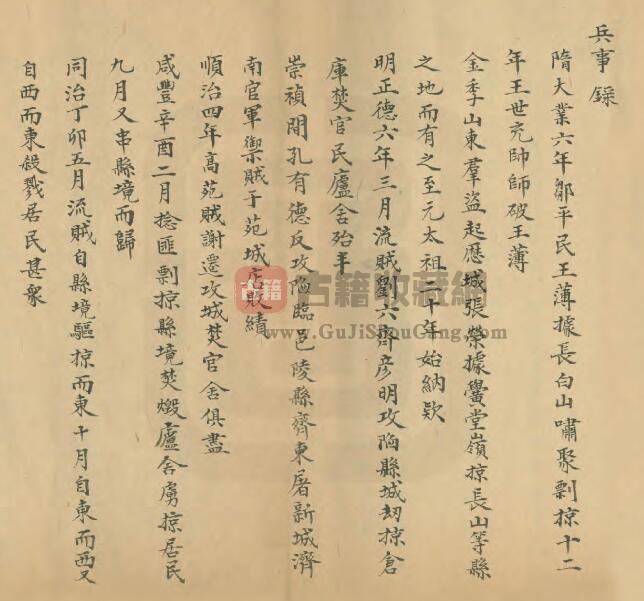 兵事錄
隋大業六年鄒平民王薄據長白山嘯聚剽掠十二
年王世充帥師破王薄
金季山東羣盜起歷城張榮據黌堂嶺掠長山等縣
之地而有之至元太祖二十年始納欵
明正德六年三月流賊劉六齊彦明攻陷縣城刼掠倉
庫焚官民廬舍殆半
崇禎間孔有德反攻陷臨邑陵縣齊東屠新城濟
南官軍禦賊于苑城店敗績
順治四年高苑賊謝遷攻城焚官舍俱盡
咸豐辛酉二月捻匪剽掠縣境焚燬廬舍虜掠居民
九月又串縣境而歸
同治丁卯五月流賊自縣境驅掠而東十月自東而西又
自西而東殺戮居民甚衆
古籍
古籍收藏網
www.GuJiShouCang.com